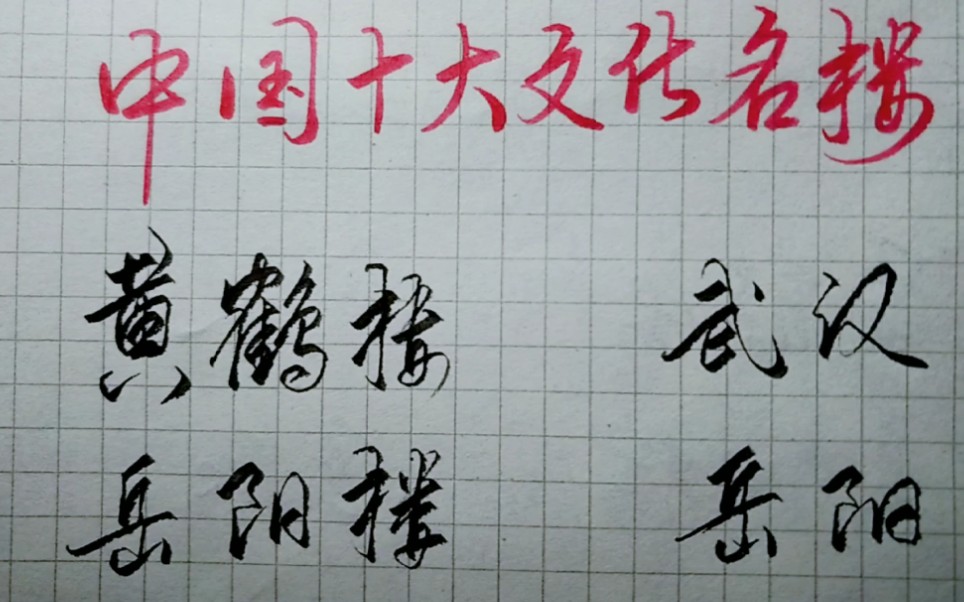 中国十大文化名楼
黄鹤楼 武汉
岳阳楼 岳阳